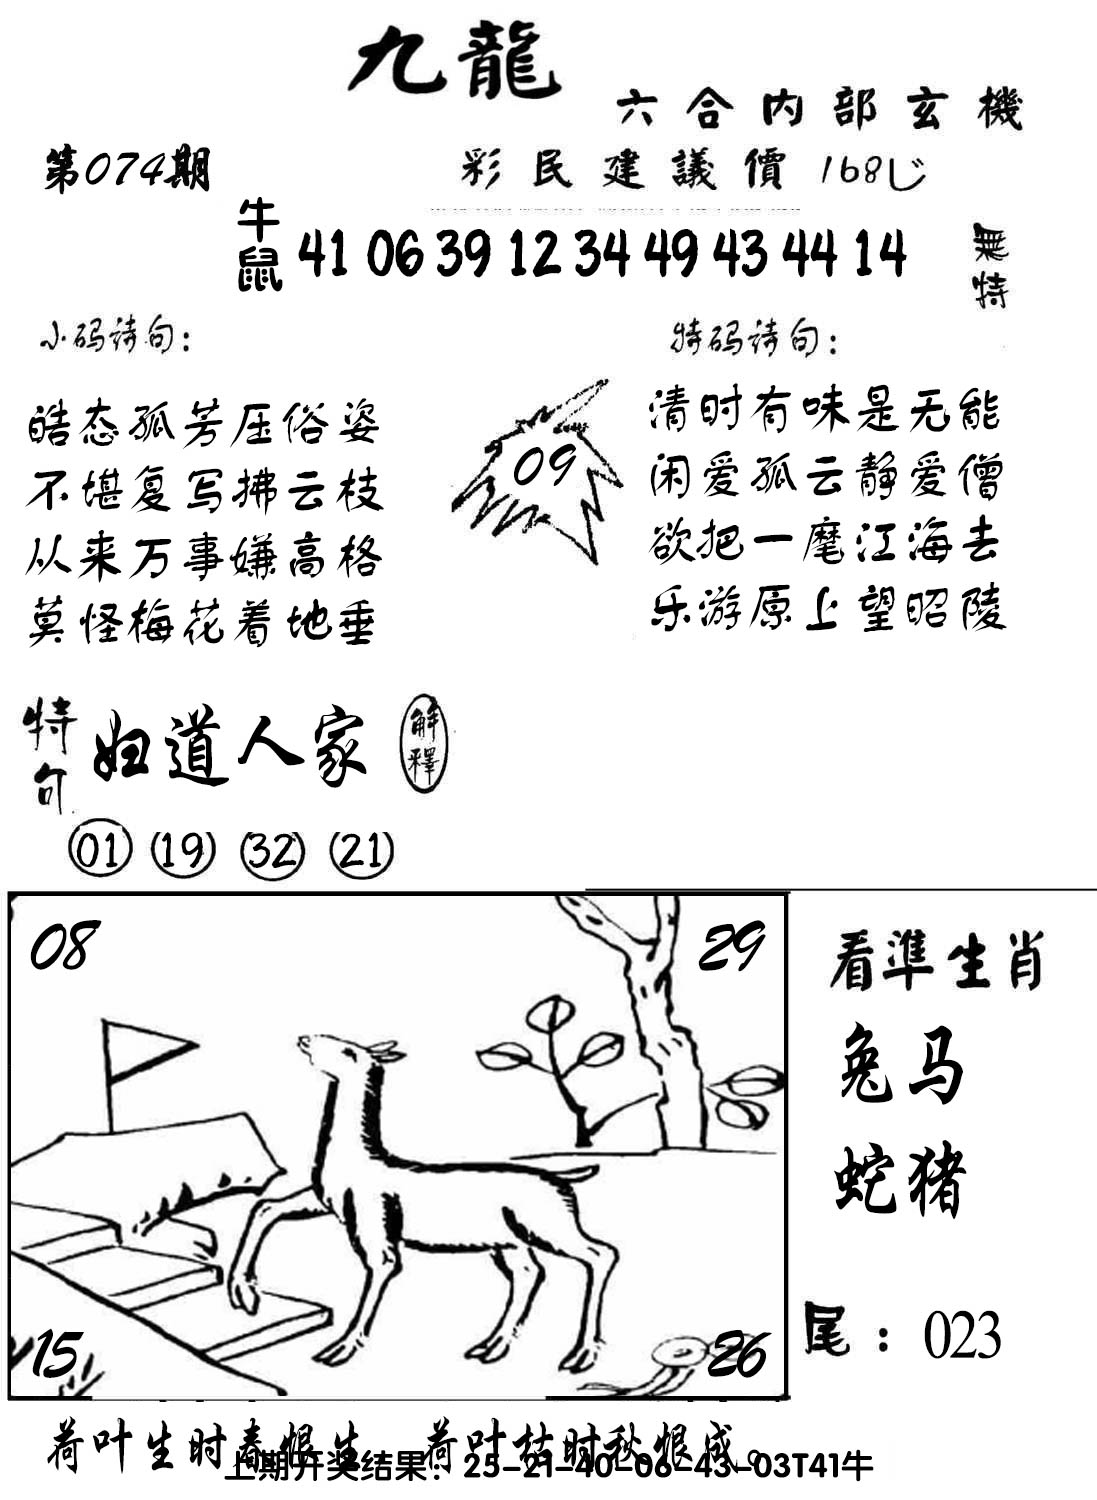 九龍
六合内部玄機
第074期
彩民建議價 168じ
牛
鼠
41 06 39 12 34 49 43 44 14
無特
小码诗句：
皓态孤芳压俗姿
不堪复写拂云枝
从来万事嫌高格
莫怪梅花着地垂
09
特码诗句：
清时有味是无能
闲爱孤云静爱僧
欲把一麾江海去
乐游原上望昭陵
特句
妇道人家
解釋
01 19 32 21
08 29
15 26
看準生肖
兔马
蛇猪
尾：023
荷叶生时春恨生 荷叶枯时秋恨成。
上期开奖结果：25-21-40-06-43-03T41牛